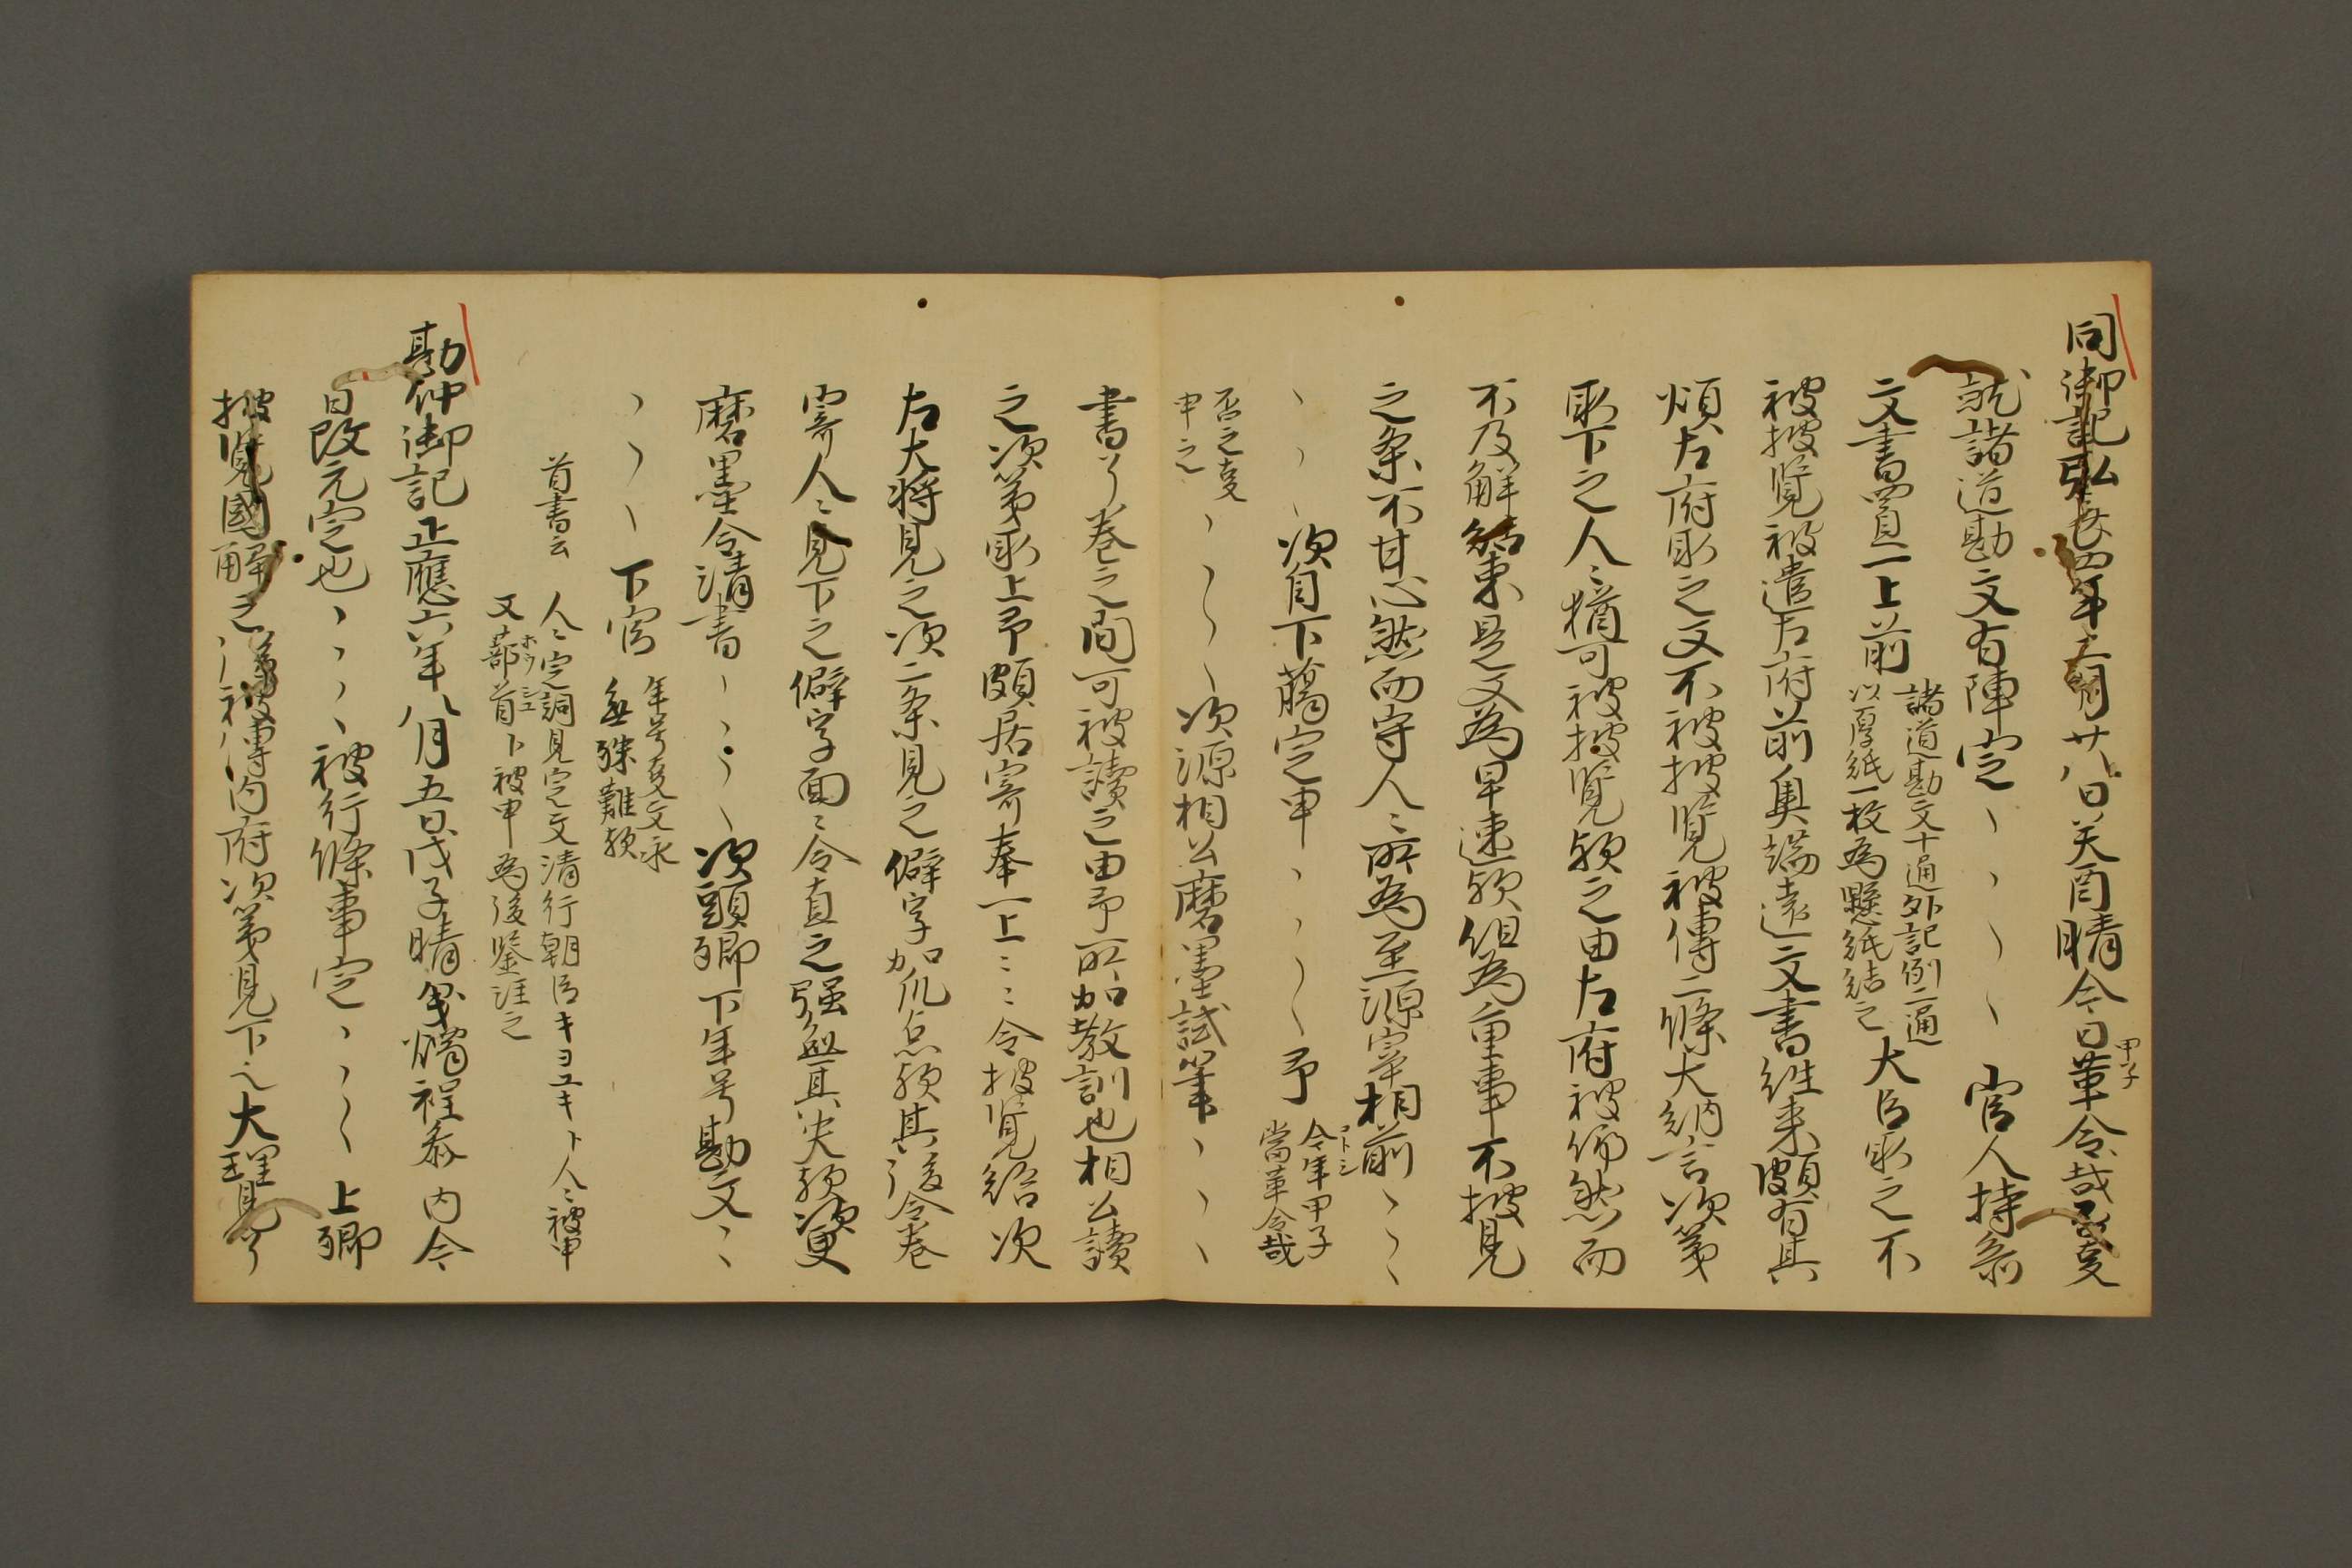 同御記弘長四年二月廿八日癸酉晴今日革令哉否叓
甲子
就諸道勘文有陣定、、、、官人持参
文書置一上前
諸道勘文十通外記例二通
以厚紙一枚為懸紙結之
大臣取之不
被披覧被遣左府前奥端遠文書往来頗有其
煩左府取之又不被披覧被傳二條大納言次第
取下之人〻猶可被披覧歟之由左府被命然而
不及解結束是又為早速歟但為重事不披見
之条不甘心然而守人〻所為至源宰相前、、、
、、、次自下﨟定申、、、、予
今年甲子
コトシ
當革令哉
否之叓
申之
、、、、次源相公磨墨試筆、、、、
書了巻之間可被讀之由予所加教訓也相公讀
之次第取上予頗居寄奉一上〻〻令披覧給次
左大将見之次二条見之僻字加爪点歟其後令巻
寄人〻見下之僻字面〻令直之強無其失歟次更
磨墨令清書、、、、次頭卿下年号勘文、、
、、、下官
年号叓文永
無殊難歟
首書云
人〻定詞見定文清行朝臣キヨユキト人〻被申
又蔀首ト被申為後鑒注之
ホウシユ
勘仲御記正應六年八月五日戊子晴秉燭程参内今
日改元定也、、、、被行條事定、、、、上卿
披覧國解之後被傳内府次第見下之大理見了